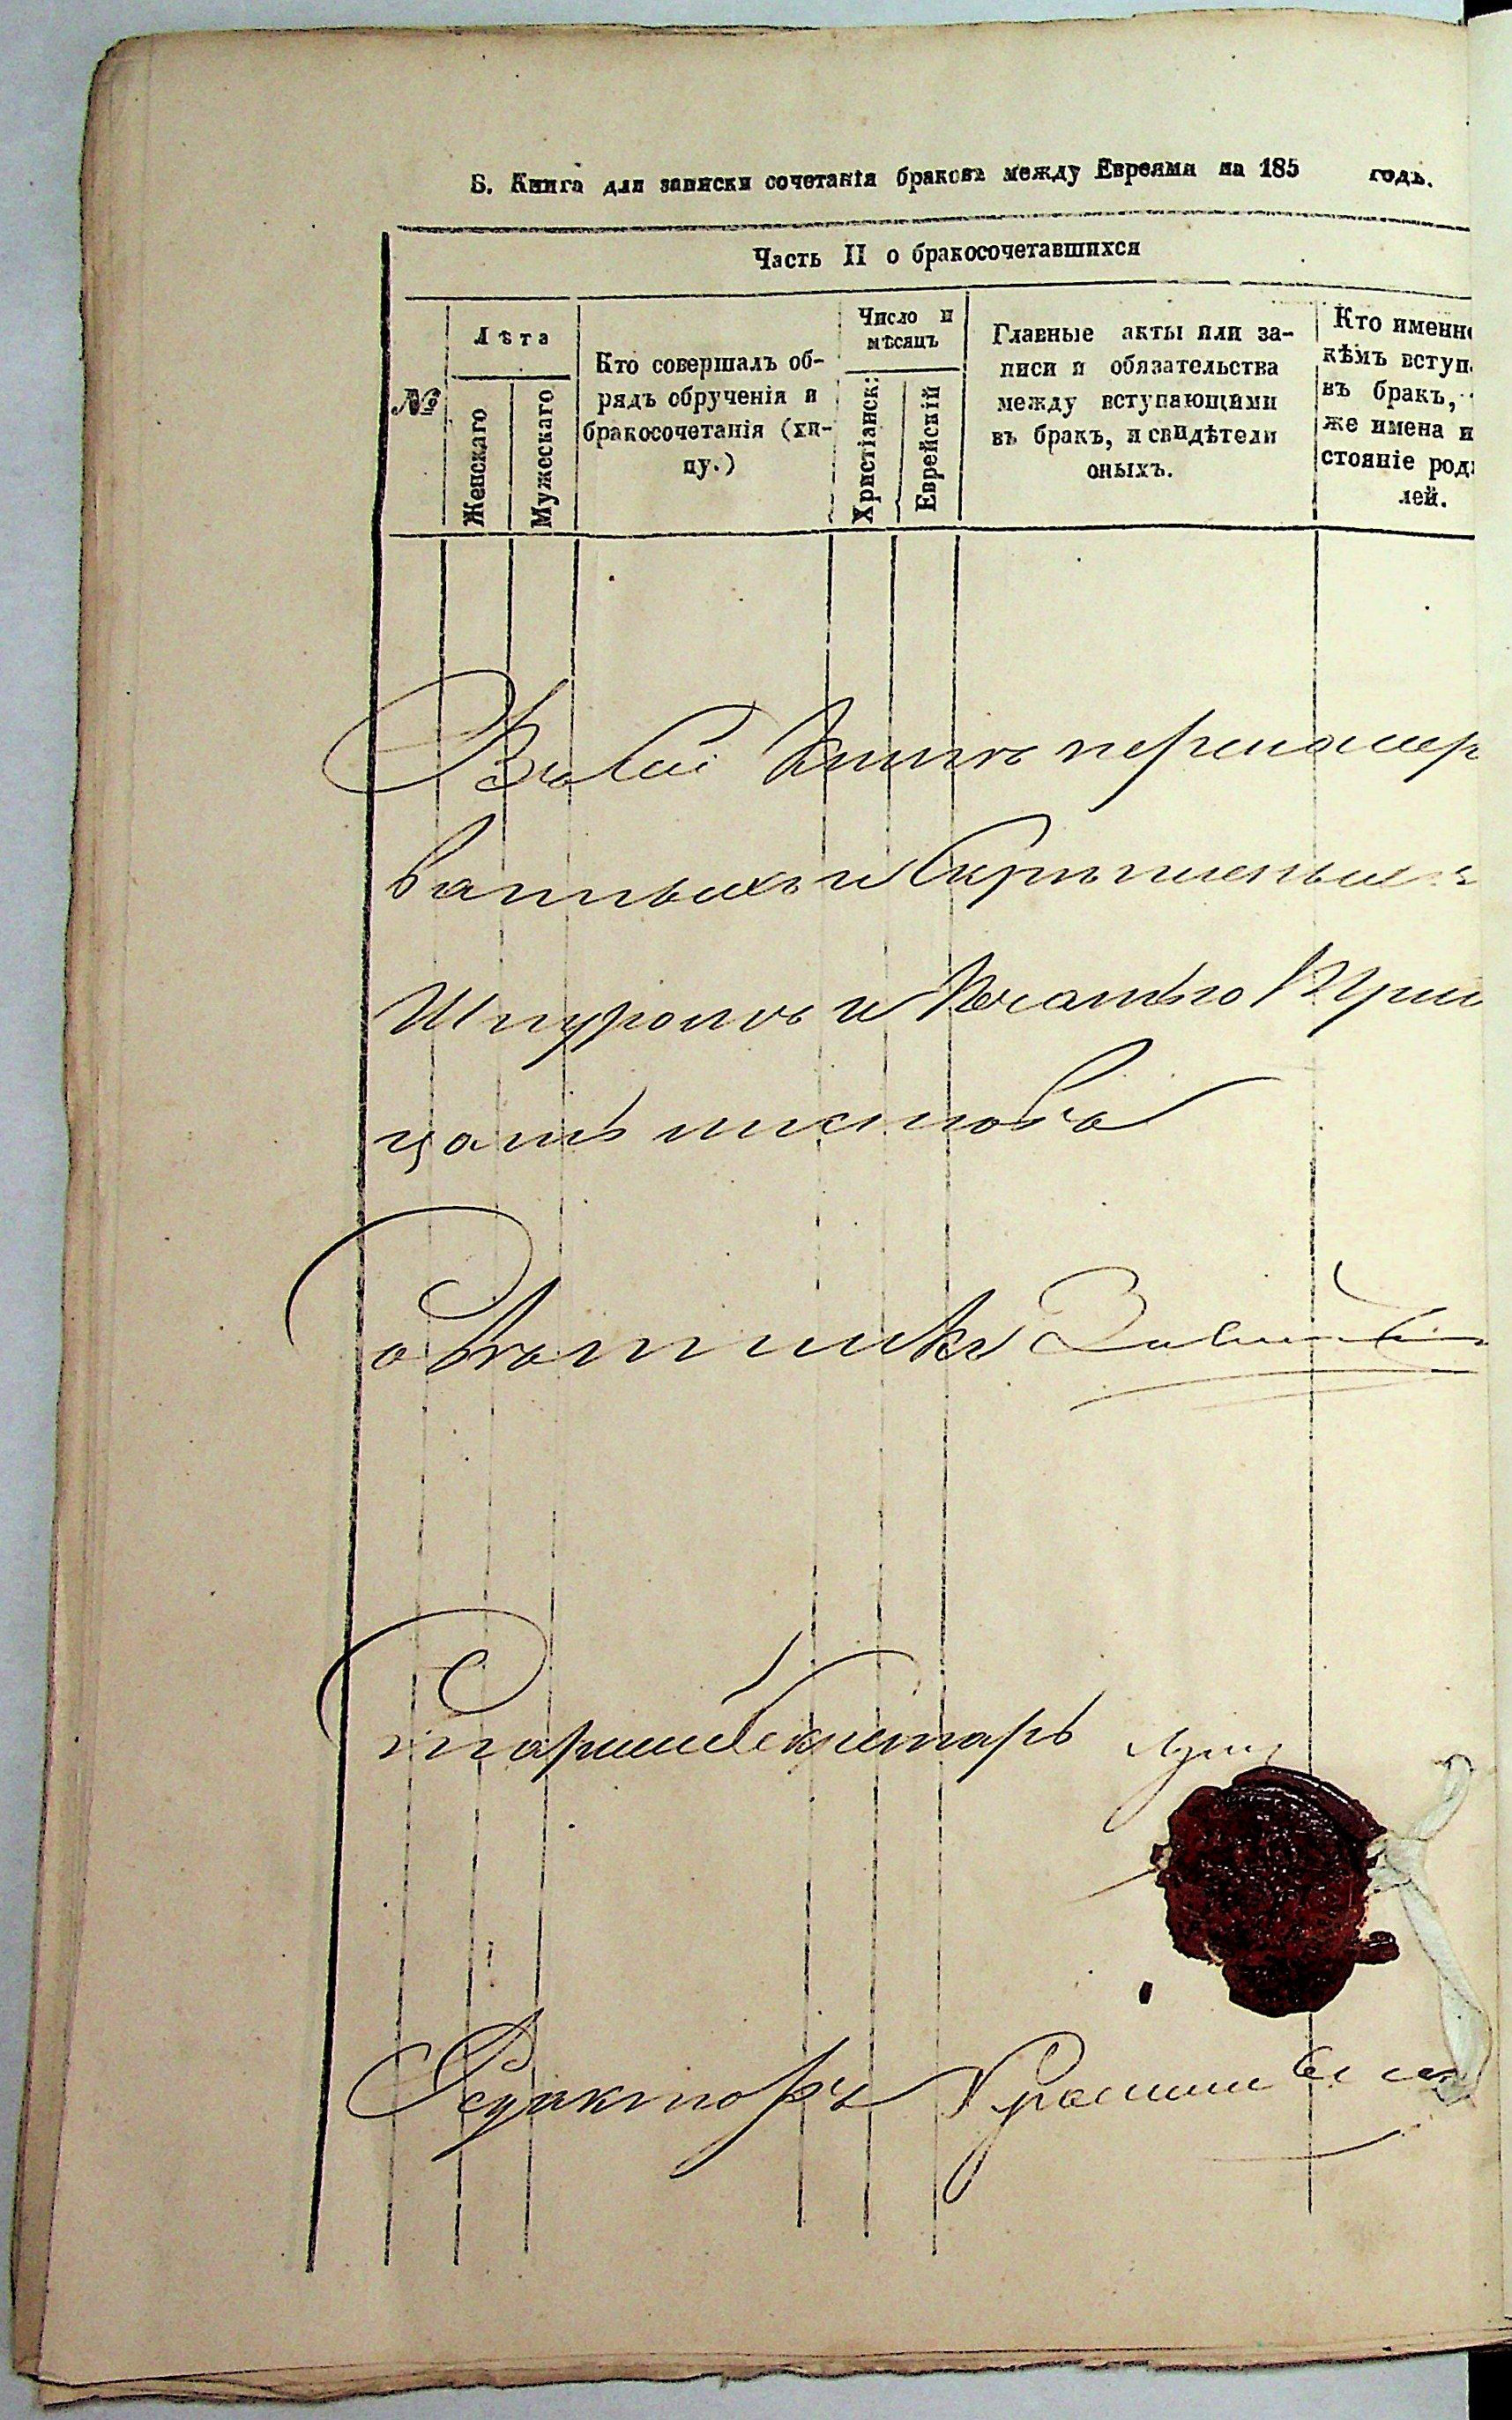 Б. Книга для записки сочетанія браковъ между Евреями на 185 годъ.
Часть II о бракосочетавшихся
№
Лѣта
Женскаго
Мужескаго
Кто совершалъ об-
рядъ обрученія и
бракосочетанія (хи-
пу.)
Число и
мѣсяцъ
Христіанск:
Еврейскій
Главные акты или за-
писи и обязательства
между вступающими
въ бракъ, и свидѣтели
оныхъ.
Кто именно
кѣмъ вступ
въ бракъ,
же имена и
стояніе род
лей.
Въ сей Книгѣ перенумеро
ванныхъ и Скрѣпленныхъ
Шнуромъ и Печатью Трид
цать листовъ
Совѣтникъ
Старшій Секретарь
Редакторъ